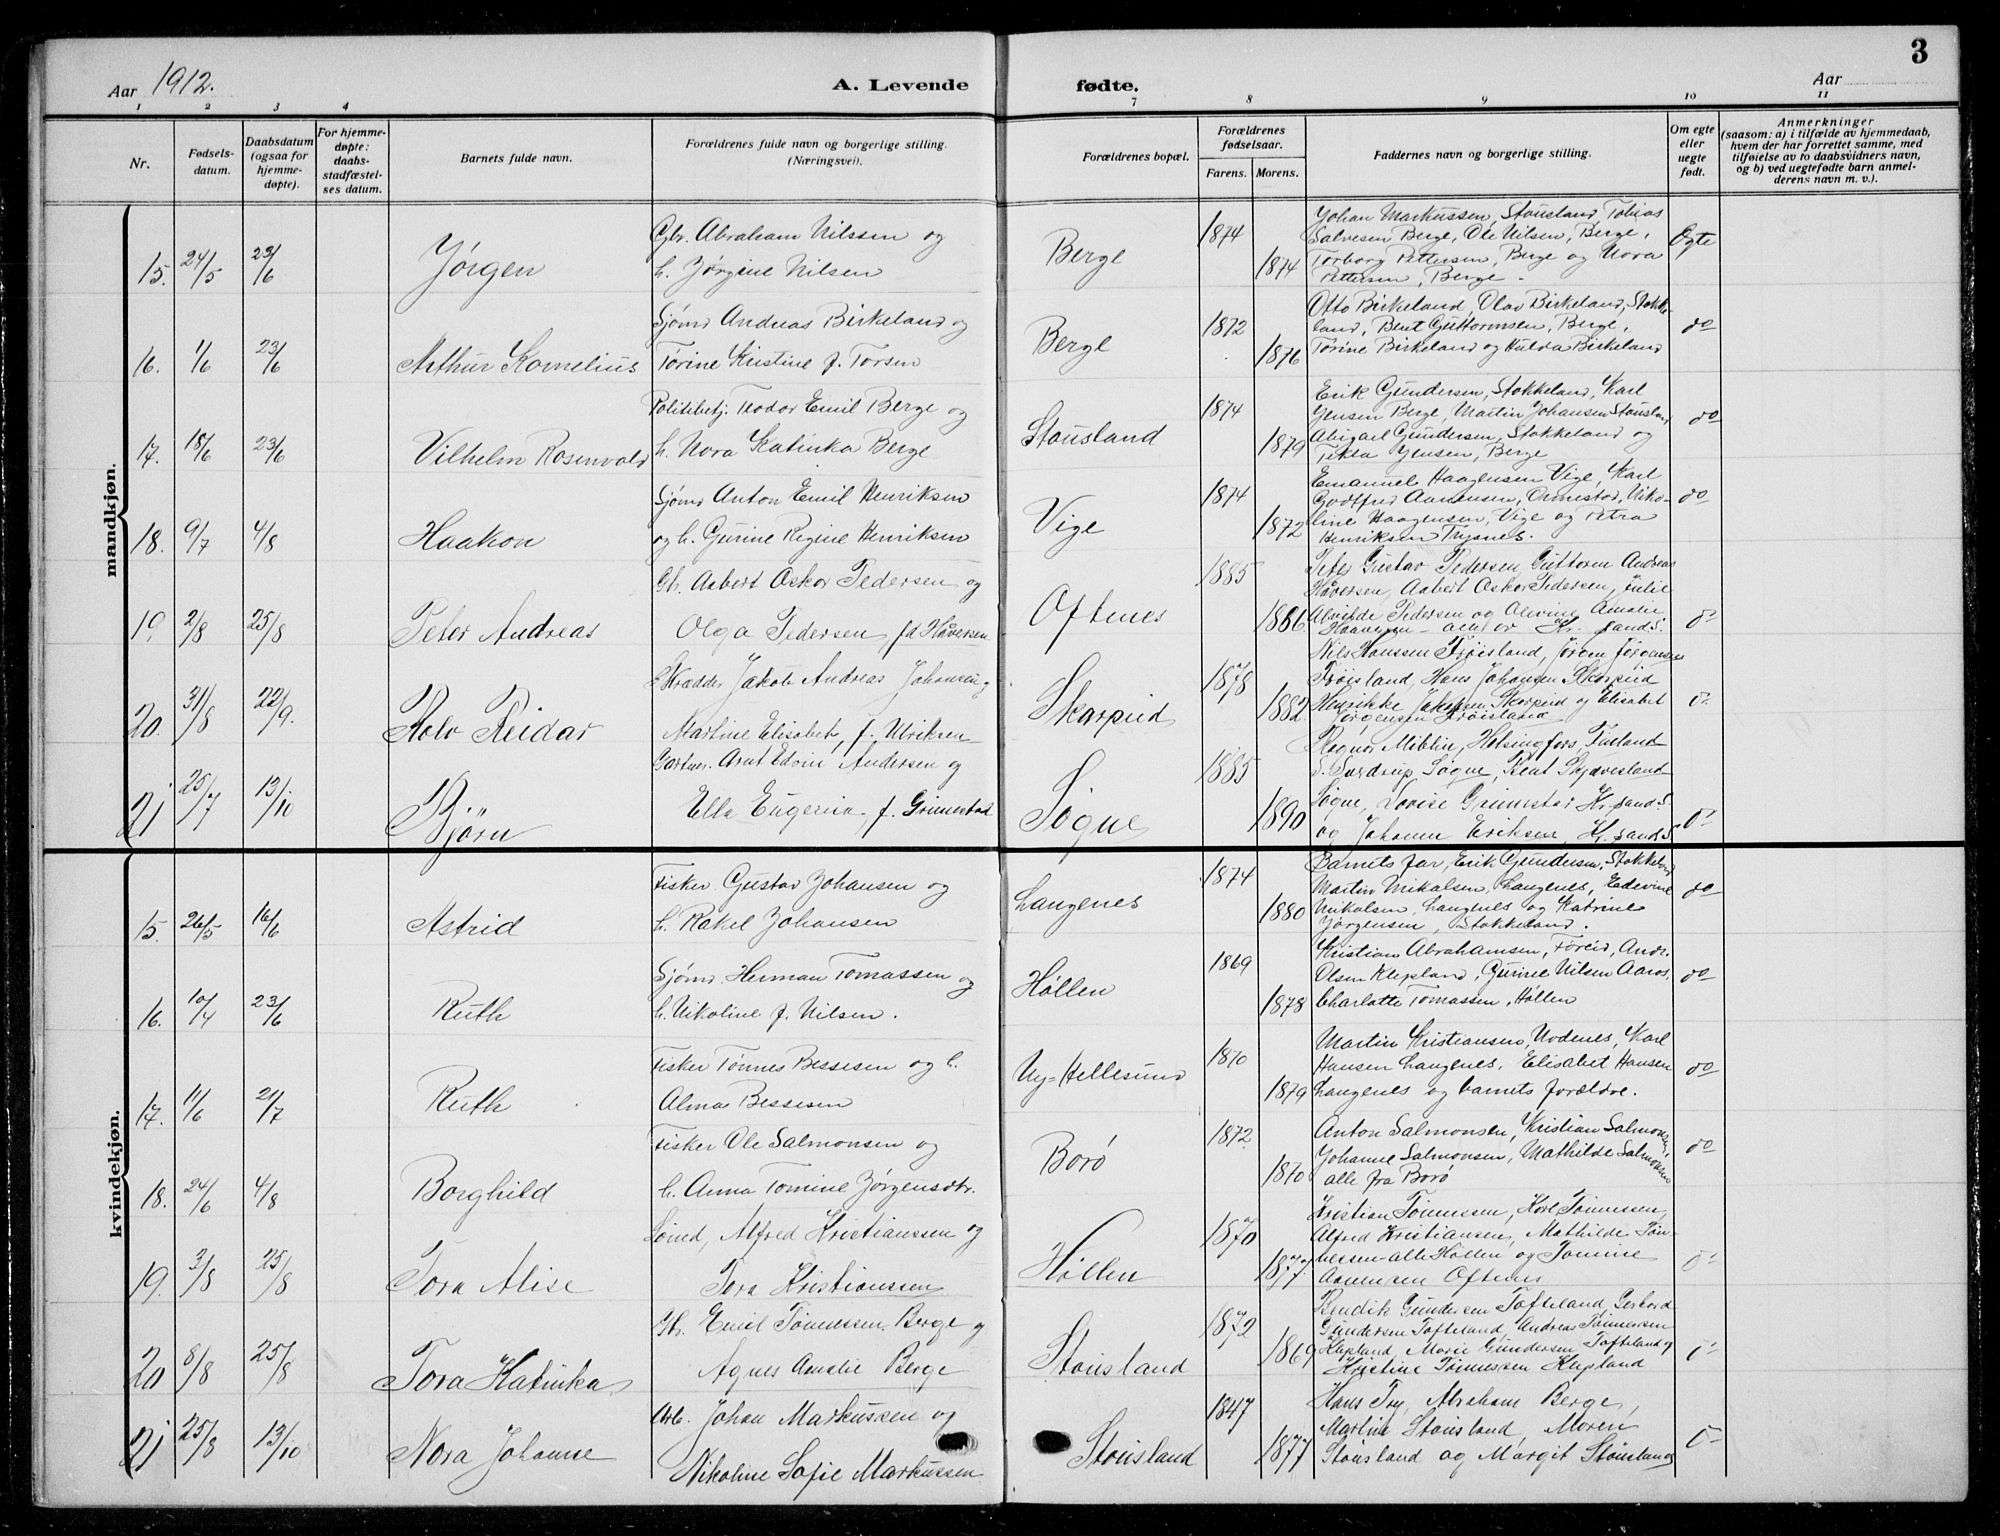 3
Aar 1912. A. Levende fødte. Aar
1 2 3 4 7 8 9 10 11
Nr.
Fødsels-
datum.
Daabsdatum
(ogsaa for
hjemme-
døpte).
For hjemme-
døpte:
daabs-
stadfæstel-
ses datum.
Barnets fulde navn.
Forældrenes fulde navn og borgerlige stilling.
(Næringsvei).
Forældrenes bopæl.
Forældrenes
fødselsaar.
Farens. Morens.
Faddernes navn og borgerlige stilling.
Om egte
eller
uegte
født.
Anmerkninger
(saasom: a) i tilfælde av hjemmedaab,
hvem der har forrettet samme, med
tilføielse av to daabsvidners navn,
og b) ved uegtefødte barn anmel-
derens navn m. v.).
mandkjøn.
15. 24/5 23/6 Jørgen
Gbr. Abraham Nilssen og
h. Jørgine Nilsen
Berge 1874 1874
Johan Markussen, Stousland, Tobias
Salvesen Berge, Ole Nilsen, Berge,
Torborg Pettersen, Berge og Nora
Pettersen, Berge.
Egte
16. 1/6 23/6 Arthur Kornelius
Sjømd Andreas Birkeland og
Torine Kristine f. Torsen
Berge 1872 1876
Otto Birkeland, Olav Birkeland, Stokke-
land, Bent Guttormsen, Berge,
Torine Birkeland og Hulda Birkeland
do
17. 18/6 23/6 Vilhelm Rosenvald
Politibetj. Teodor Emil Berge og
h. Nora Katinka Berge
Stousland 1874 1879
Erik Gundersen, Stokkeland, Karl
Jensen Berge, Martin Johansen Stousland
Abigael Gundersen, Stokkeland og
Tekla Jensen, Berge
do
18. 9/7 4/8 Haakon
Sjømd Anton Emil Henriksen
og h. Gurine Regine Henriksen
Vige 1874 1872
Emanuel Haagensen Vige, Karl
Godtfred Aanensen, Ormestad, Niko-
line Haagensen, Vige og Petra
Henriksen Trysnes.
do
19. 2/8 25/8 Peter Andreas
Gbr. Aabert Oskar Pedersen og
Olga Pedersen fd Håversen
Oftenes 1885 1886
Peter Gustav Pedersen, Guttorm Andreas
Håversen, Aabert Oskar Pedersen, Julie
Alvilde Pedersen og Olevine Amalie
Haaversen – alle av Kr.sand S.
do
20. 31/8 22/9. Rolv Reidar
Skrædder Jakob Andreas Johansen og
Martine Elisabet, f. Ulriksen
Skarpeid 1878 1882
Nils Hanssen Trøisland, Jørgen Jørgensen
Trøisland, Hans Johansen Skarpeid
Henrikke Jakobsen Skarpeid og Elisabet
Jørgensen Trøisland
do
21 25/7 13/10 Bjørn
Gartner. Arnt Edvin Andersen og
Ella Eugenia f. Grimestad
Søgne 1885 1890
Ragnar Miblin, Helsingfors, Finland
S. Sverdrup Søgne, Bent Skjævesland
Søgne, Lovise Grimestad Kr.sand S.
og Johanne Eriksen, Kr.sand S.
do
kvindekjøn.
15. 26/5 16/6 Astrid
Fisker Gustav Johansen og
h. Rakel Johansen
Langenes 1874 1880
Barnets far, Erik Gundersen, Stokkeland
Martin Mikalsen, Langenes, Edevine
Mikalsen, Langenes og Katrine
Jørgensen, Stokkeland.
do
16. 10/4 23/6 Ruth
Sjømd. Herman Tomassen og
h. Nikoline f. Nilsen.
Høllen 1869 1878
Kristian Abrahamsen, Føreid, Andr.
Olsen Klepland, Gunne Nilsen Aaros,
Charlotte Tomassen, Høllen
do
17. 11/6 21/7 Ruth
Fisker Tønnes Bessesen og h.
Alma Bessesen
Ny-Hellesund 1870 1879
Martin Kristiansen, Nodenes, Karl
Hansen Langenes, Elisabet Hansen
Langenes og barnets forældre.
do
18. 24/6 4/8 Borghild
Fisker Ole Salmonsen og
h. Anna Tomine Jørgensdtr.
Borø 1872 1870
Anton Salmonsen, Kristian Salmonsen,
Johanne Salmonsen, Mathilde Salmonsen
alle fra Borø
do
19. 3/8 25/8 Tora Alise
Sømd, Alfred Kristianssen og
Tora Kristianssen
Høllen 1870 1877.
Kristian Tønnessen, Karl Tønnessen,
Alfred Kristiansen, Mathilde Tøn-
nessen – alle Høllen og Tomine
Aanensen Oftenes
do
20 8/8 25/8 Tora Katinka
Gbr. Emil Tønnessen Berge og
Agnes Amalie Berge
Stousland 1872 1869
Bendik Gundersen Tofteland, Gerhard
Gundersen Tofteland, Andreas Tønnessen
Klepland, Marie Gundersen Tofteland og
Kristine Tønnessen Klepland
do
21 25/8 13/10 Nora Johanne
Arb. Johan Markussen og
Nikoline Sofie Markussen
Stousland 1847 1877
Hans Try, Abraham Berge,
Martine Stousland, Moren
Stousland og Margit Stousland
do